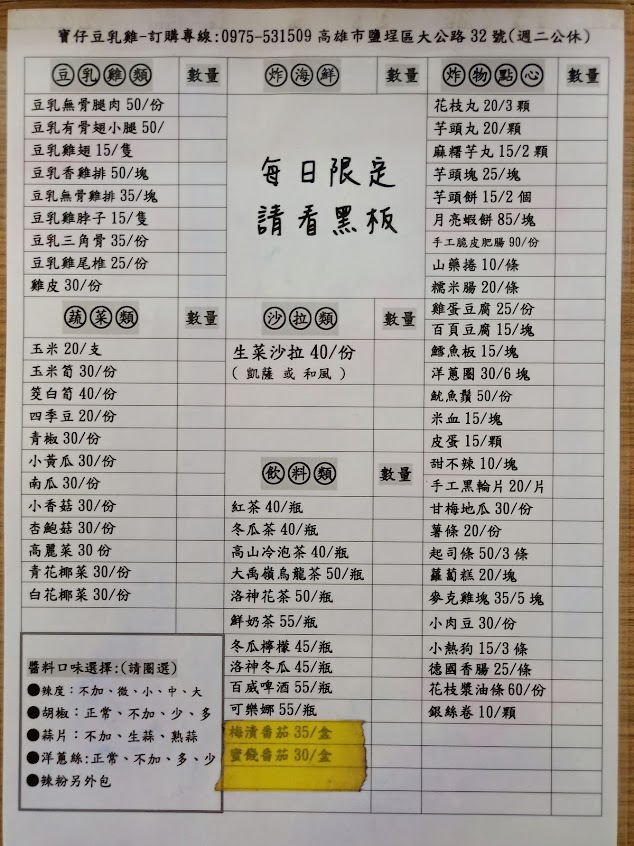 寶仔豆乳雞-訂購專線:0975-531509 高雄市鹽埕區大公路 32 號(週二公休)
豆乳雞類 數量
豆乳無骨腿肉 50/份
豆乳有骨翅小腿 50/
豆乳雞翅 15/隻
豆乳香雞排 50/塊
豆乳無骨雞排 35/塊
豆乳雞脖子 15/隻
豆乳三角骨 35/份
豆乳雞尾椎 25/份
雞皮 30/份
蔬菜類 數量
玉米 20/支
玉米筍 30/份
茭白筍 40/份
四季豆 20/份
青椒 30/份
小黃瓜 30/份
南瓜 30/份
小香菇 30/份
杏鮑菇 30/份
高麗菜 30 份
青花椰菜 30/份
白花椰菜 30/份
醬料口味選擇:(請圈選)
●辣度：不加、微、小、中、大
●胡椒：正常、不加、少、多
●蒜片：不加、生蒜、熟蒜
●洋蔥絲:正常、不加、多、少
●辣粉另外包
炸海鮮 數量
每日限定
請看黑板
沙拉類 數量
生菜沙拉 40/份
( 凱薩 或 和風 )
飲料類 數量
紅茶 40/瓶
冬瓜茶 40/瓶
高山冷泡茶 40/瓶
大禹嶺烏龍茶 50/瓶
洛神花茶 50/瓶
鮮奶茶 55/瓶
冬瓜檸檬 45/瓶
洛神冬瓜 45/瓶
百威啤酒 55/瓶
可樂娜 55/瓶
梅漬番茄 35/盒
蜜餞番茄 30/盒
炸物點心 數量
花枝丸 20/3 顆
芋頭丸 20/顆
麻糬芋丸 15/2 顆
芋頭塊 25/塊
芋頭餅 15/2 個
月亮蝦餅 85/塊
手工脆皮肥腸 90/份
山藥捲 10/條
糯米腸 20/條
雞蛋豆腐 25/份
百頁豆腐 15/塊
鱈魚板 15/塊
洋蔥圈 30/6 塊
魷魚鬚 50/份
米血 15/塊
皮蛋 15/顆
甜不辣 10/塊
手工黑輪片 20/片
甘梅地瓜 30/份
薯條 20/份
起司條 50/3 條
蘿蔔糕 20/塊
麥克雞塊 35/5 塊
小肉豆 30/份
小熱狗 15/3 條
德國香腸 25/條
花枝漿油條 60/份
銀絲卷 10/顆